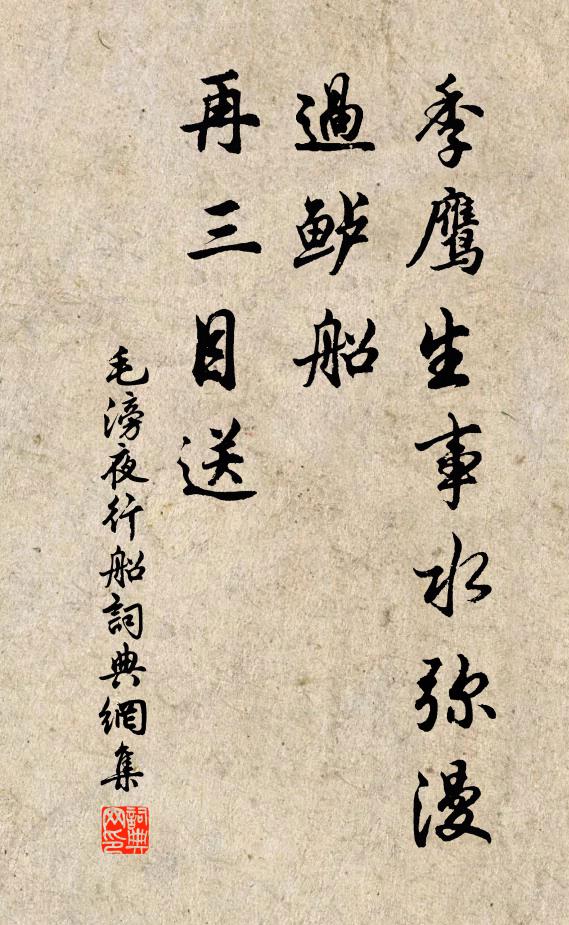 季鹰生事水弥漫
過鲈船
再三目送
毛滂夜行船詞典網集
詞典网印